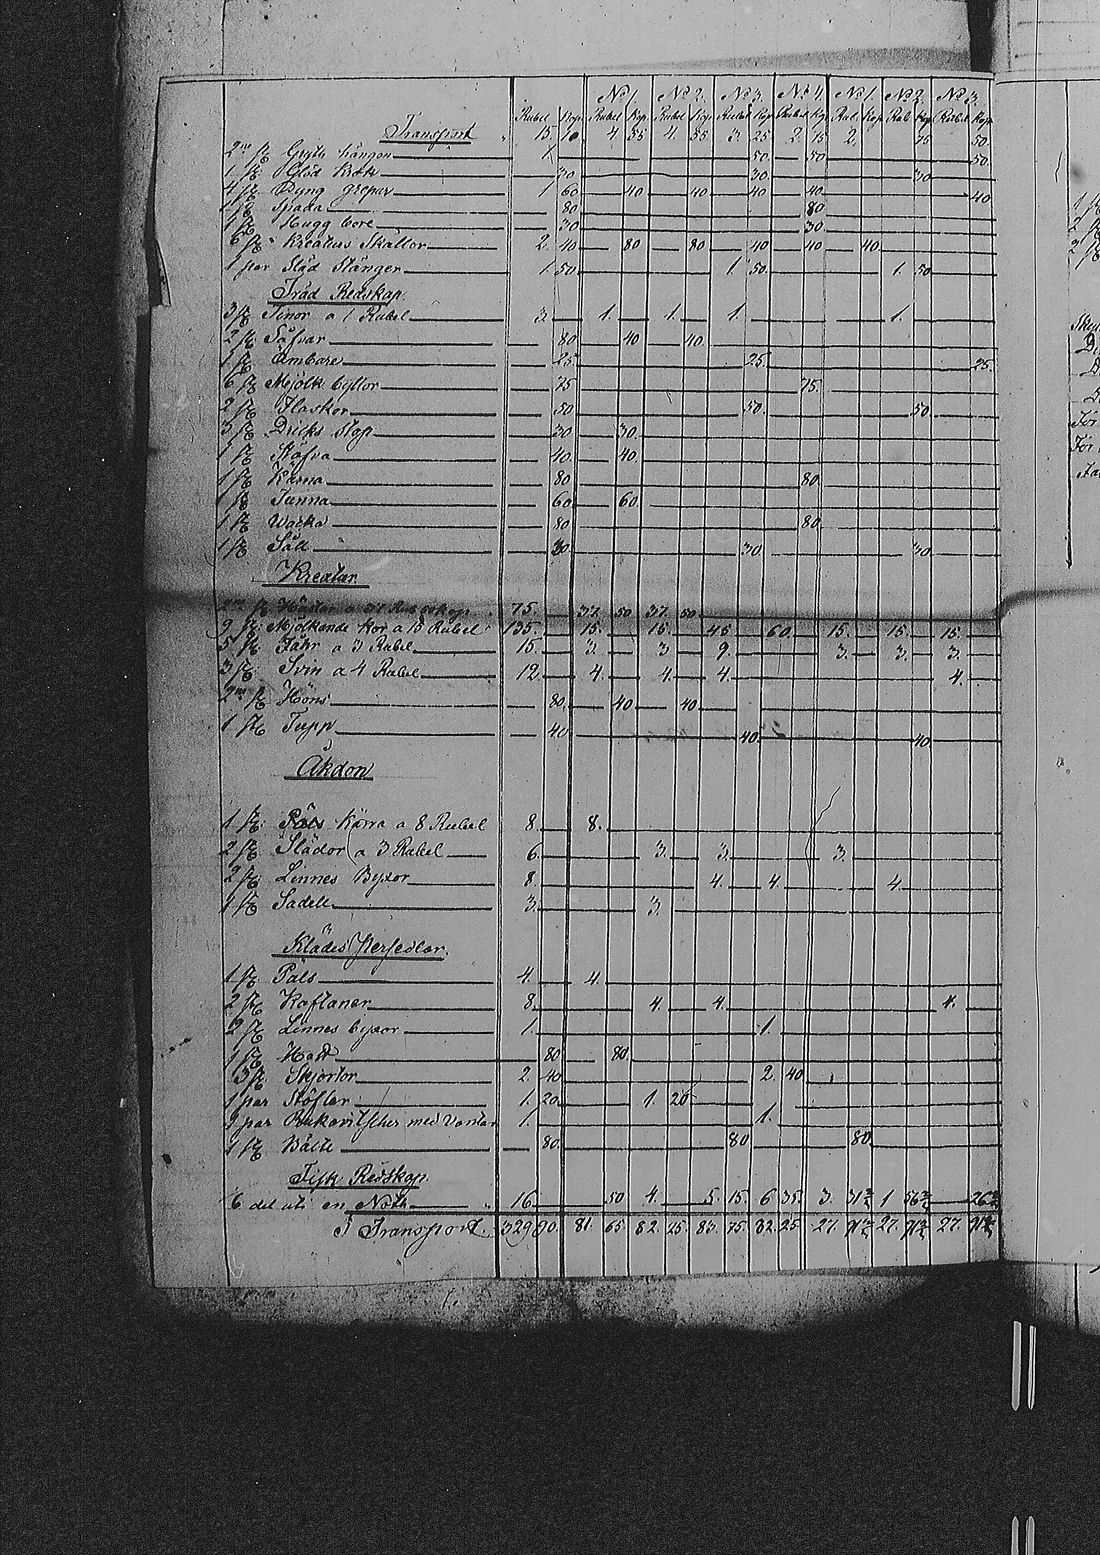 No 1 No 2 No 3 No 4 No 1 No 2 No 3
Rubel Kop Rubel Kop Rubel Kop Rubel Kop Rubel Kop Rub. Kop Rub. Kop Rubel Kop
Transport 15 10 4 55 4 55 3 25 2 75 2 75 50
2ne st. Gryte hängen 1 50 50 50
1 st. 30 30 30
4 st. Dyng grepar 1 60 40 40 40 40 40
2 st. Spada 80 80
1 st. Hugg bore 30 30
6 st. Kreaturs Skällor 2 40 80 80 40 40 40
1 par Släd Stänger 1 50 1 50 1 50
Träd Redskap
3 st. Tinor a 1 Rubel 3 1 1 1 1
2 st. Såfvar 80 40 40
1 st. Ämbare 25 25 25
6 st. Mjölk byttor 75 75
2 st. Flaskor 50 50 50
3 st. Dricks stop 30 30
1 st. Stäfva 40 40
1 st. Kärna 80 80
1 st. Tunna 60 60
1 st. Wacka 80 80
1 st. Såll 30 30 30
Kreatur
2ne st. Hästar a 37 Rub 50 kop 75 37 50 37 50
9 st. Mjölkande Kor a 15 Rubel 135 15 15 45 60 15 15 15
5 st. Fåhr a 3 Rubel 15 3 3 9 3 3 3
3 st. Svin a 4 Rubel 12 4 4 4 4
2ne st. Höns 80 40 40
1 st. Tupp 40 40 40
Åkdon
1 st. Kärra a 8 Rubel 8 8
2 st. Slädor a 3 Rubel 6 3 3 3
2 st. Linnes Byxor 8 4 4 4
1 st. Sadell 3 3
Klädes Persedlar
1 st. Päls 4 4
2 st. Kaftaner 8 4 4 4
2 st. Linnes byxor 1 1
1 st. Hatt 80 80
3 st. Skjortor 2 40 2 40
1 par Stöflar 1 20 1 20
2 par Rukavitscher med Vantar 1 1
1 st. Bälte 80 80 80
Fisk Redskap
6 del uti en Noth 16 50 4 5 15 6 35 3 31 1 56 26
I Transport 329 90 81 65 82 15 83 75 82 25 27 91 27 91 27 91